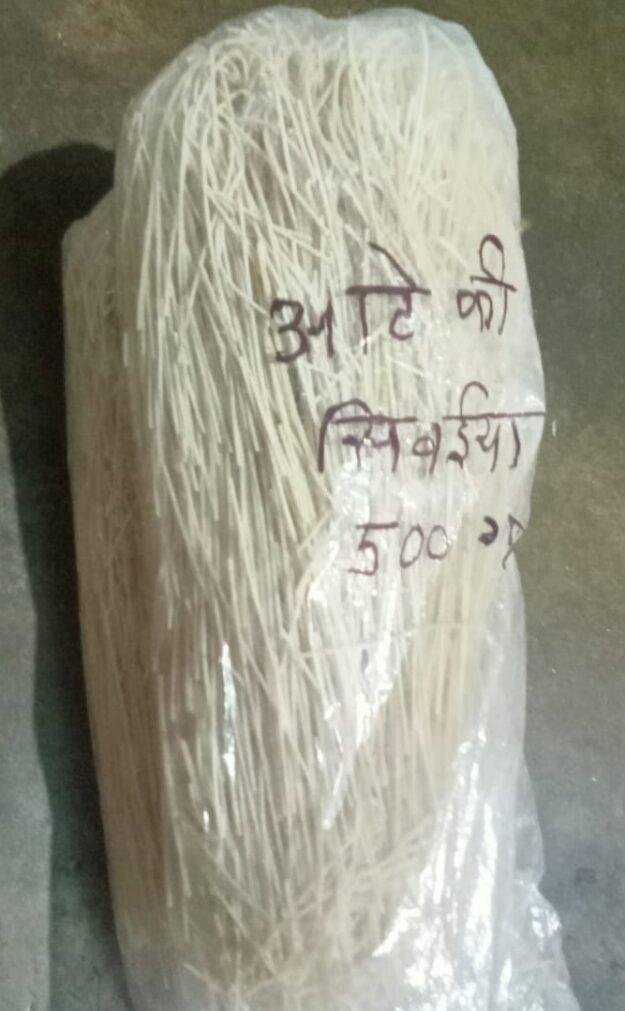 आटे की
सिवईया
500